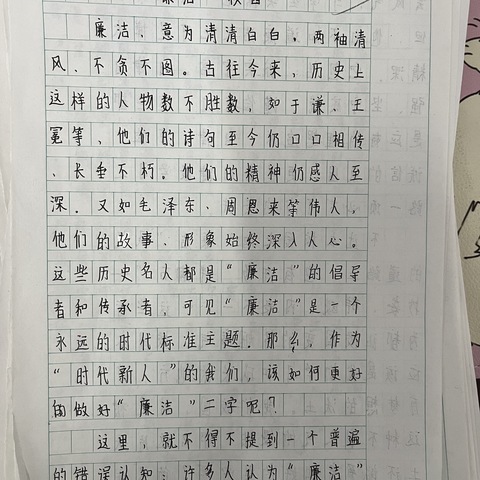 廉洁、意为清清白白。两袖清
风、不贪不图。古往今来，历史上
这样的人物数不胜数，如于谦、王
冕等、他们的诗句至今仍口口相传
、长垂不朽。他们的精神仍感人至
深。又如毛泽东、周恩来等伟人，
他们的故事、形象始终深入人心。
这些历史名人都是“廉洁”的倡导
者和传承者，可见“廉洁”是一个
永远的时代标准主题。那么，作为
“时代新人”的我们，该如何更好
的做好“廉洁”二字呢？
这里，就不得不提到一个普遍
的错误认知，许多人认为“廉洁”